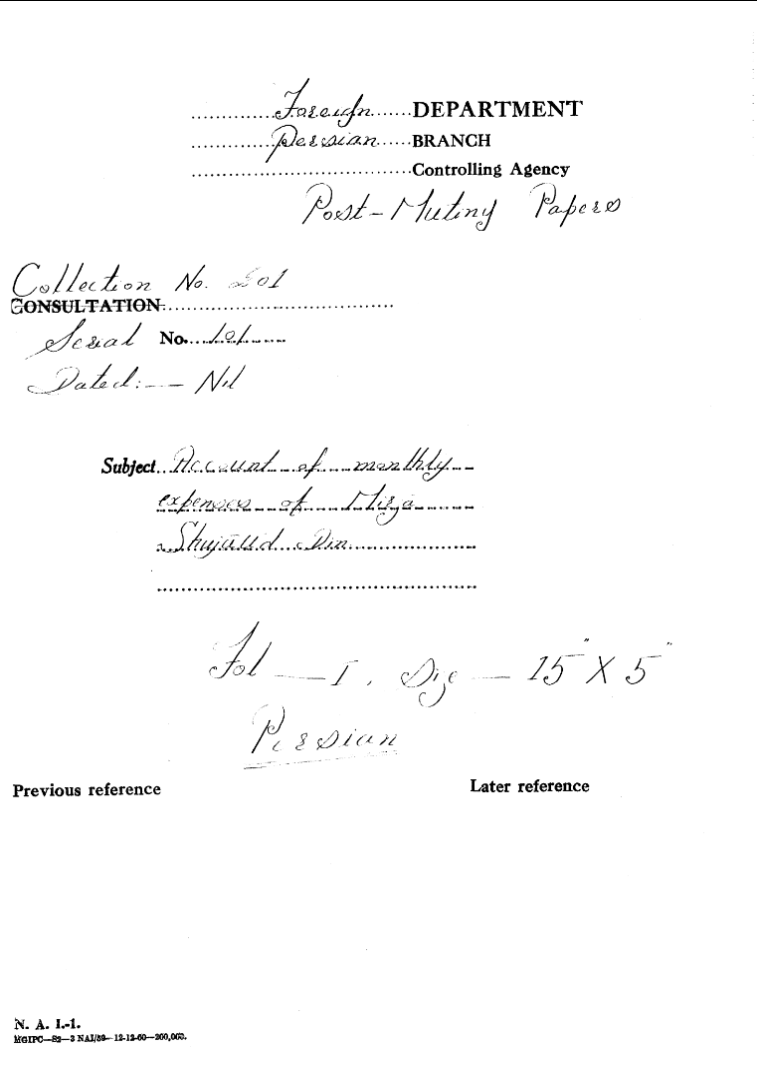 Foreign DEPARTMENT
Persian BRANCH
Controlling Agency
Post-Mutiny Papers
Collection No. 201
CONSULTATION
Serial No. 101
Dated:— Nil
Subject Account of monthly
expenses of Mirza
Shujaud Din
Fol — I. Size — 15" X 5"
Persian
Previous reference
Later reference
N. A. I.-1.
MGIPC—S2—3 NAI/59—12-12-60—200,000.